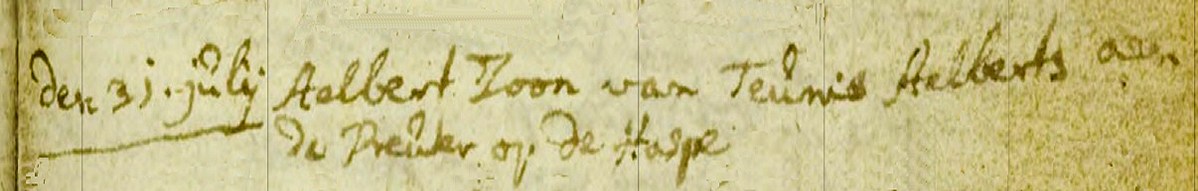 den 31. julij Aelbert Zoon van Teunis Aelberts aen
de Preuker op de Haspe